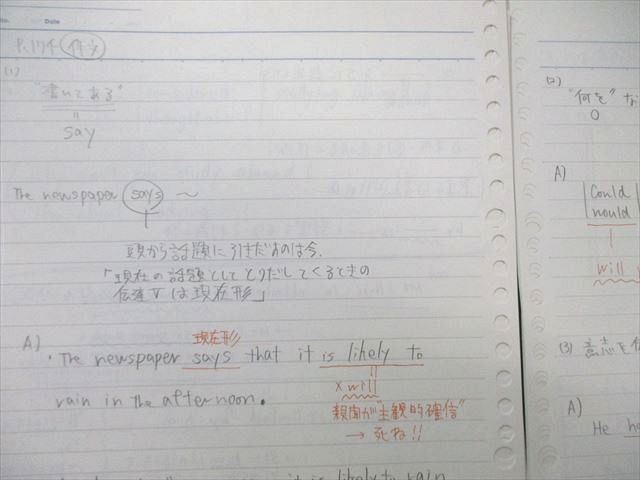 No.
Date
P.174 作文
(1)
"書いてある"
say
The newspaper says ~
頭から話題に引きだすのは今.
「現在の話題としてとりだしてくるときの
伝達Vは現在形」
A)
現在形
・The newspaper says that it is likely to
× will
rain in the afternoon.
新聞が"主観的確信"
→ 死ね!!
it is likely to rain
(2)
"何を"
A)
Could
would
will
(3) 意志を
A)
He